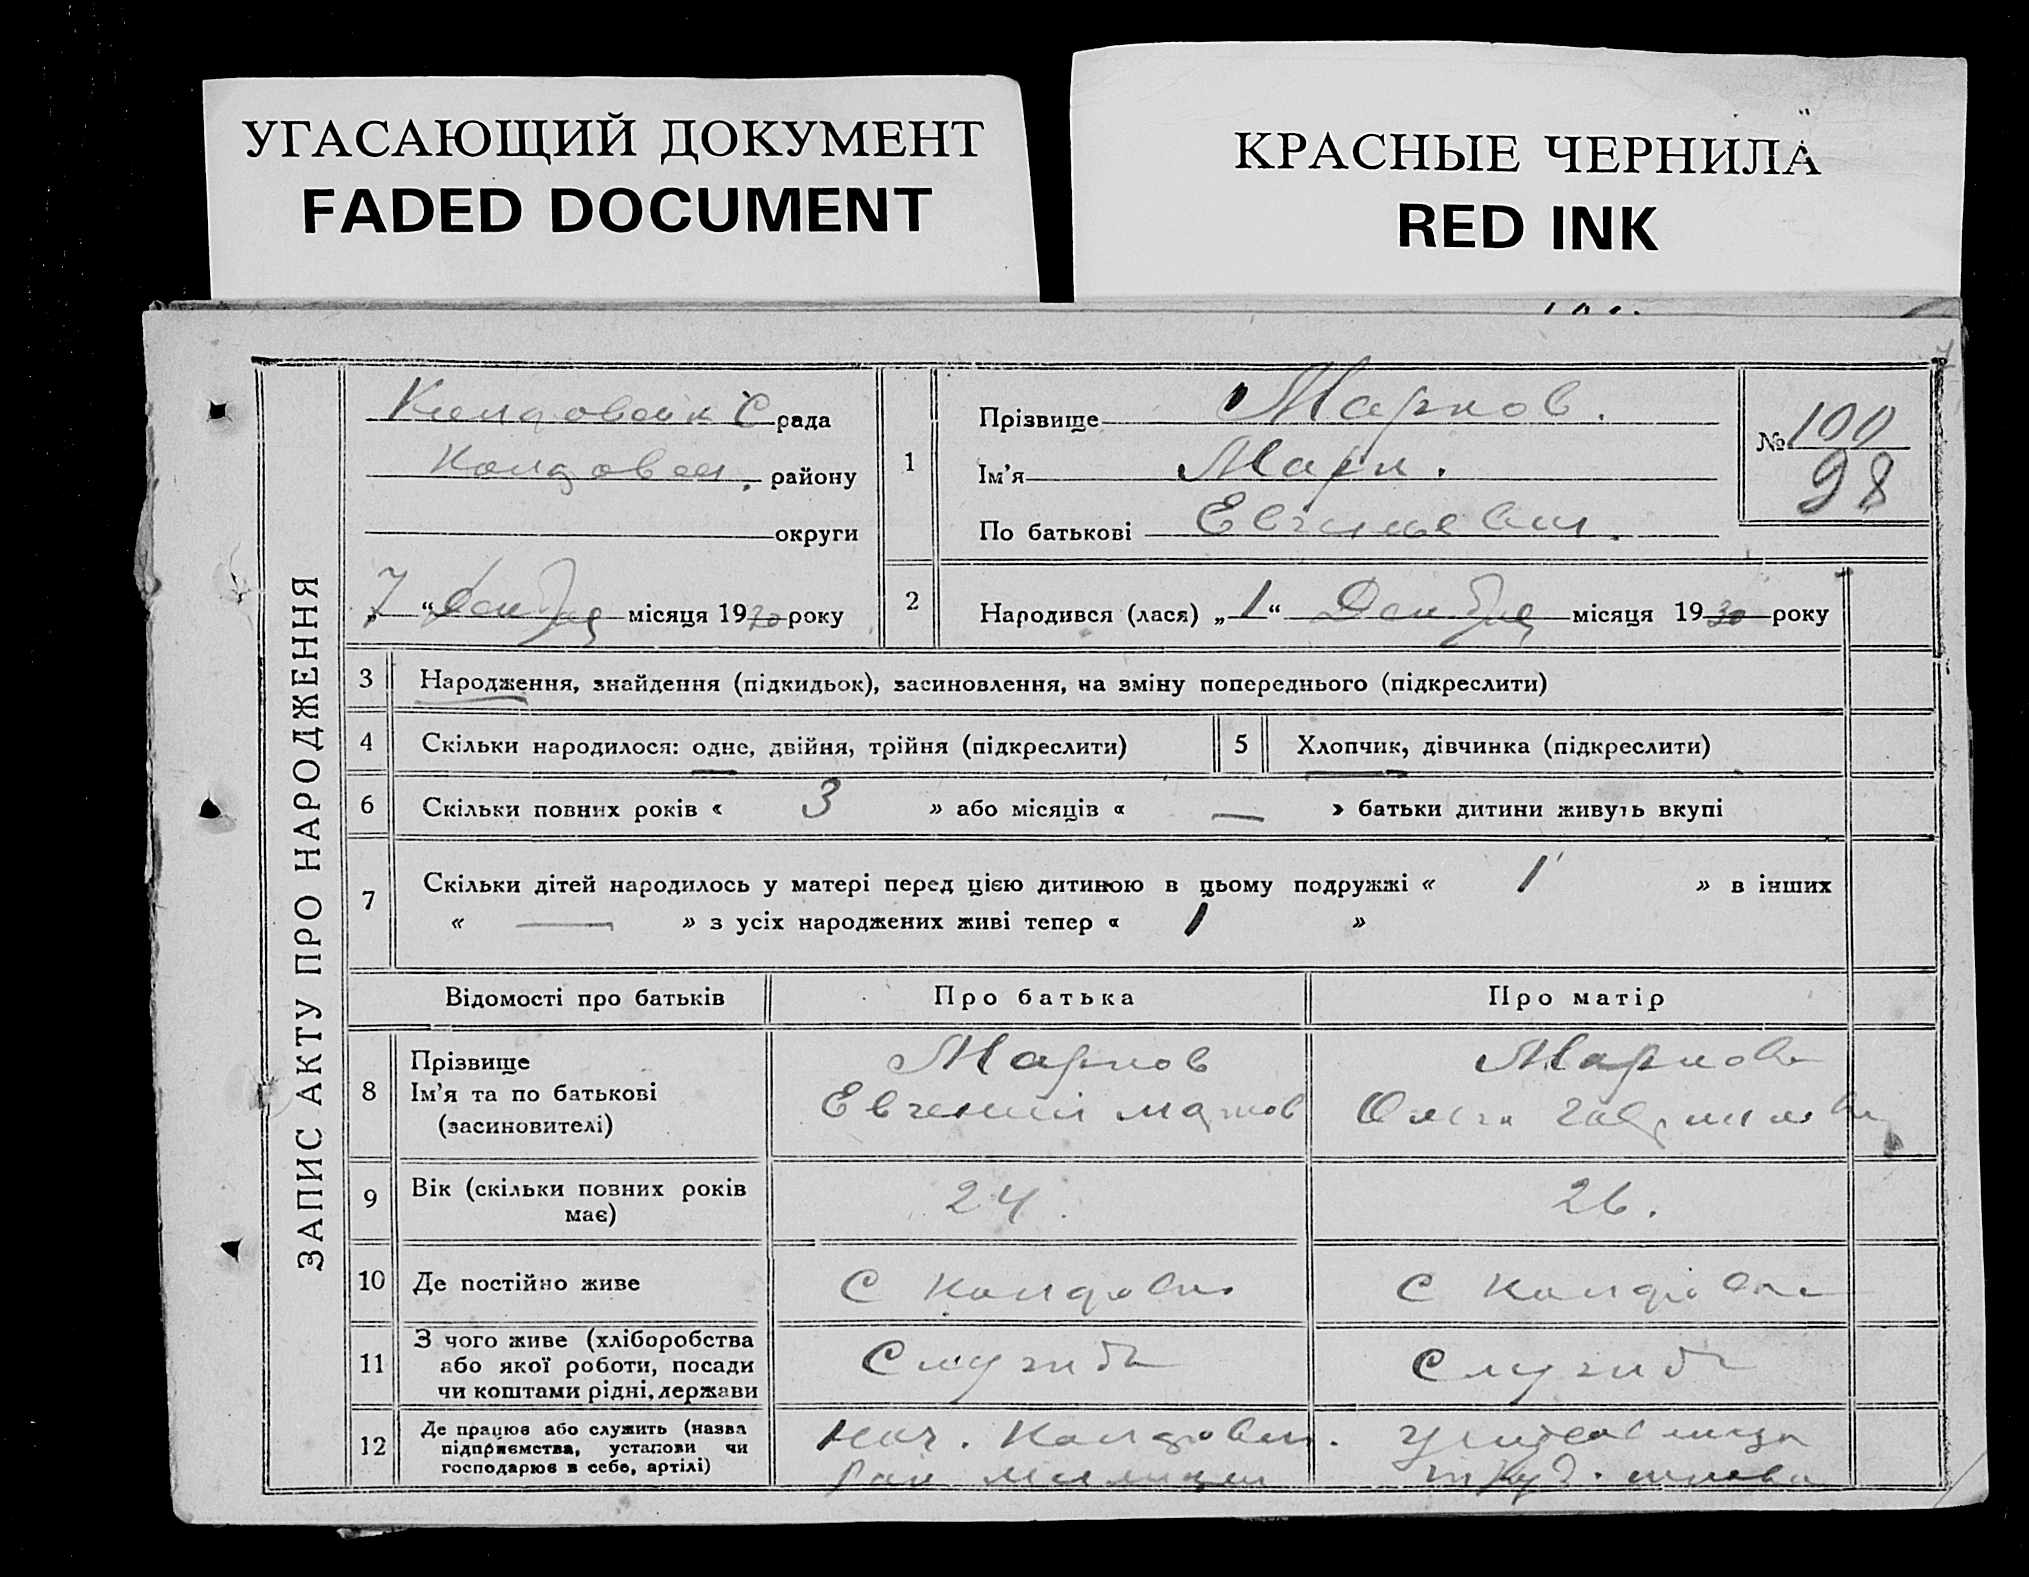 УГАСАЮЩИЙ ДОКУМЕНТ
FADED DOCUMENT
КРАСНЫЕ ЧЕРНИЛА
RED INK
ЗАПИС АКТУ ПРО НАРОДЖЕННЯ
С рада
району
округи
„7“ Декабря місяця 1930 року
1
Прізвище Марков.
Ім’я Марк.
По батькові
№ 100
98
2
Народився (лася) „1“ Декабря місяця 1930 року
3 Народження, знайдення (підкидьок), засиновлення, на зміну попереднього (підкреслити)
4 Скільки народилося: одне, двійня, трійня (підкреслити)
5 Хлопчик, дівчинка (підкреслити)
6 Скільки повних років « 3 » або місяців « — » батьки дитини живуть вкупі
7 Скільки дітей народилось у матері перед цією дитиною в цьому подружжі « 1 » в інших
« — » з усіх народжених живі тепер « 1 »
Відомості про батьків
Про батька
Про матір
8
Прізвище
Ім’я та по батькові
(засиновителі)
Марков
Евгений Марков
Маркова
Ольга
9
Вік (скільки повних років
має)
24.
26.
10 Де постійно живе
С
С
11
З чого живе (хліборобства
або якої роботи, посади
чи коштами рідні, держави
Служба
Служба
12
Де працює або служить (назва
підприємства, установи чи
господарює в себе, артілі)
Нач.
Рай милиции
Учительница
труд. школа